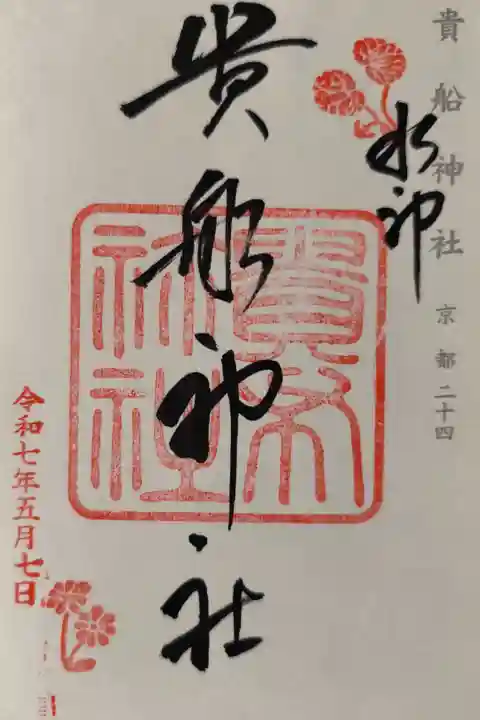 貴船神社 京都二十四
水神
貴船神社
令和七年五月七日